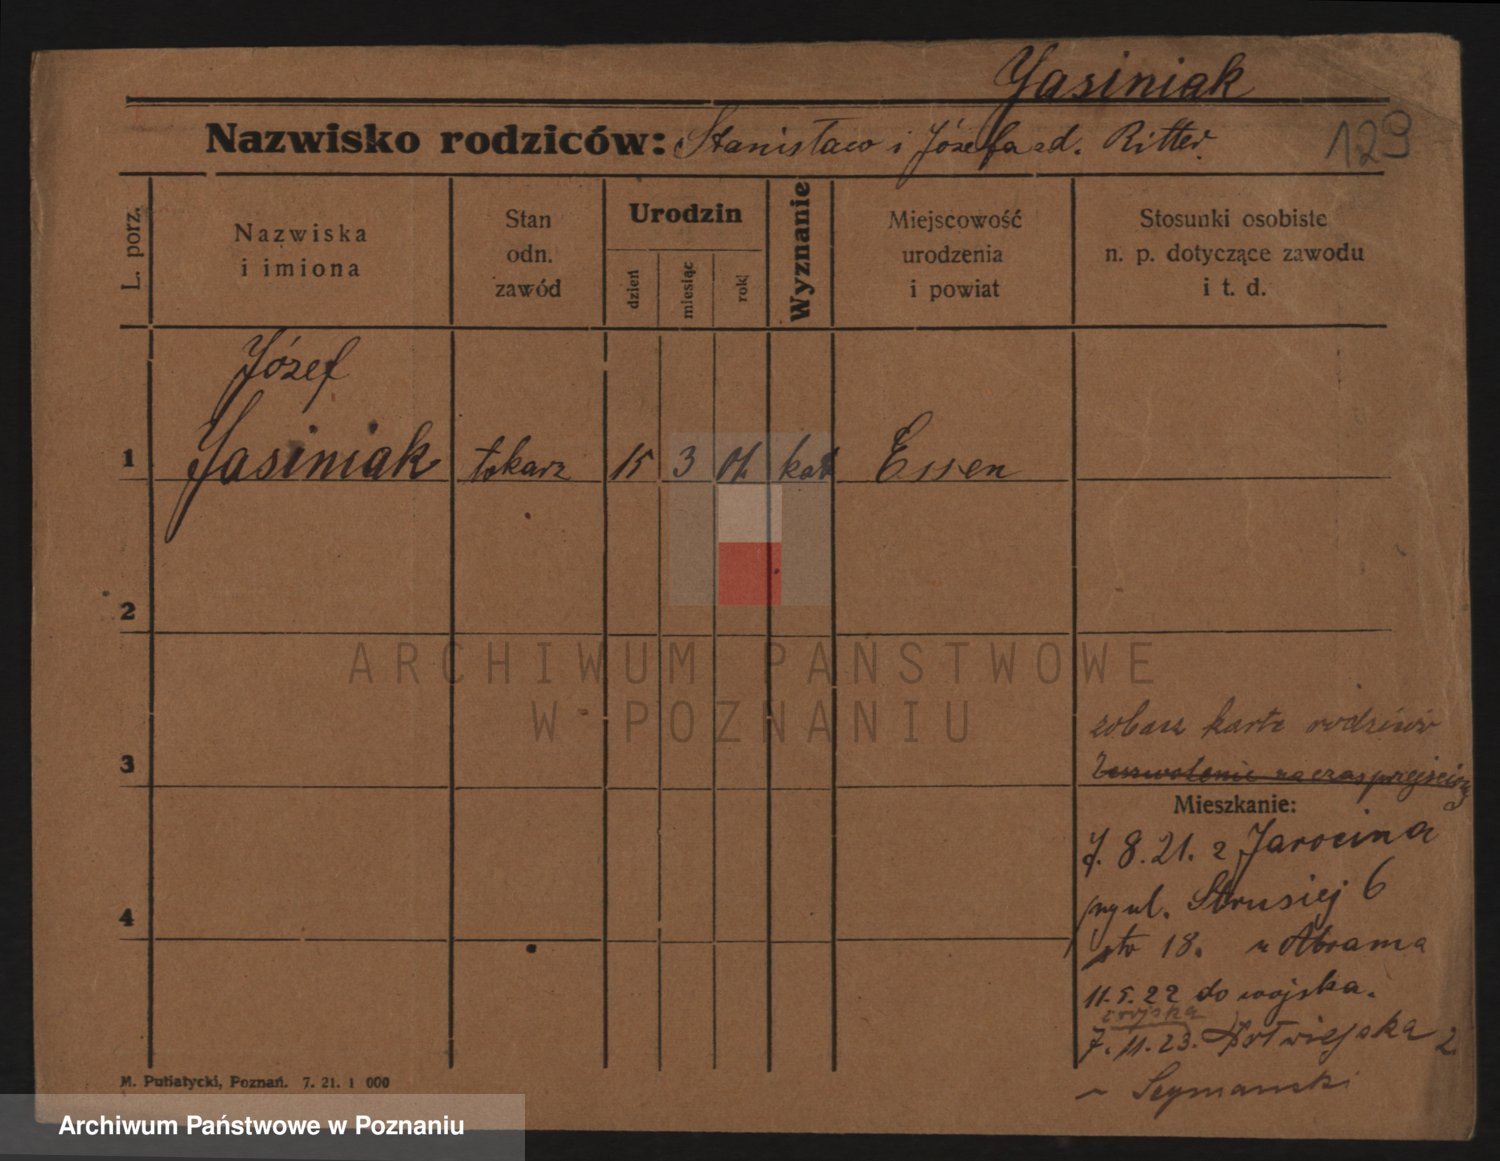 Jasiniak
Nazwisko rodziców: Stanisław i Józefa zd. Ritter.
129
L. porz.
Nazwiska
i imiona
Stan
odn.
zawód
Urodzin
dzień
miesiąc
rok
Wyznanie
Miejscowość
urodzenia
i powiat
Stosunki osobiste
n. p. dotyczące zawodu
i t. d.
Józef
1 Jasiniak tokarz 15 3 01. kat Essen
2
ARCHIWUM PAŃSTWOWE
W POZNANIU
zobacz kartę rodziców
3
Zezwolenie na czas przejściowy
Mieszkanie:
8.21. z Jarocina
przy ul. Strusiej 6
4
18. u Abrama
11.5.22 do wojska.
z wojska
7.11.23. 2
M. Putiatycki, Poznań. 7. 21. 1 000
Archiwum Państwowe w Poznaniu